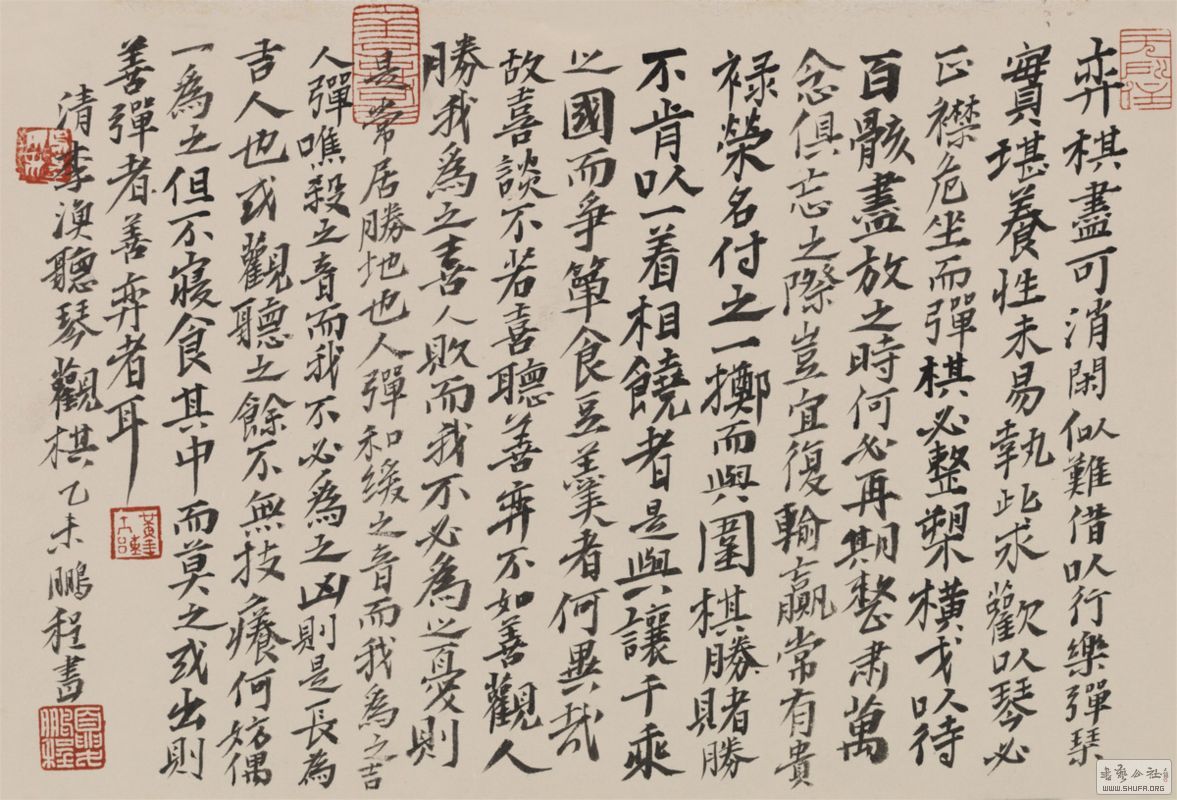 弈棋盡可消閑似難借以行樂彈琴
實堪養性未易執此求歡以琴必
正襟危坐而彈棋必整槊橫戈以待
百骸盡放之時何必再期整肅萬
念俱忘之際豈宜復輸贏常有貴
禄榮名付之一擲而與圍棋勝賭勝
不肯以一着相饒者是與讓千乘
之國而爭簞食豆羹者何異哉
故喜談不若喜聽善弈不如善觀人
勝我為之喜人敗而我不必為之憂則
是常居勝地也人彈和緩之音而我為之吉
人彈噍殺之音而我不必為之凶則是長為
吉人也或觀聽之餘不無技癢何妨偶
一為之但不寢食其中而莫之或出則
善彈者善弈者耳
清李漁聽琴觀棋乙未鵬程書
書藝公社
WWW.SHUFA.ORG